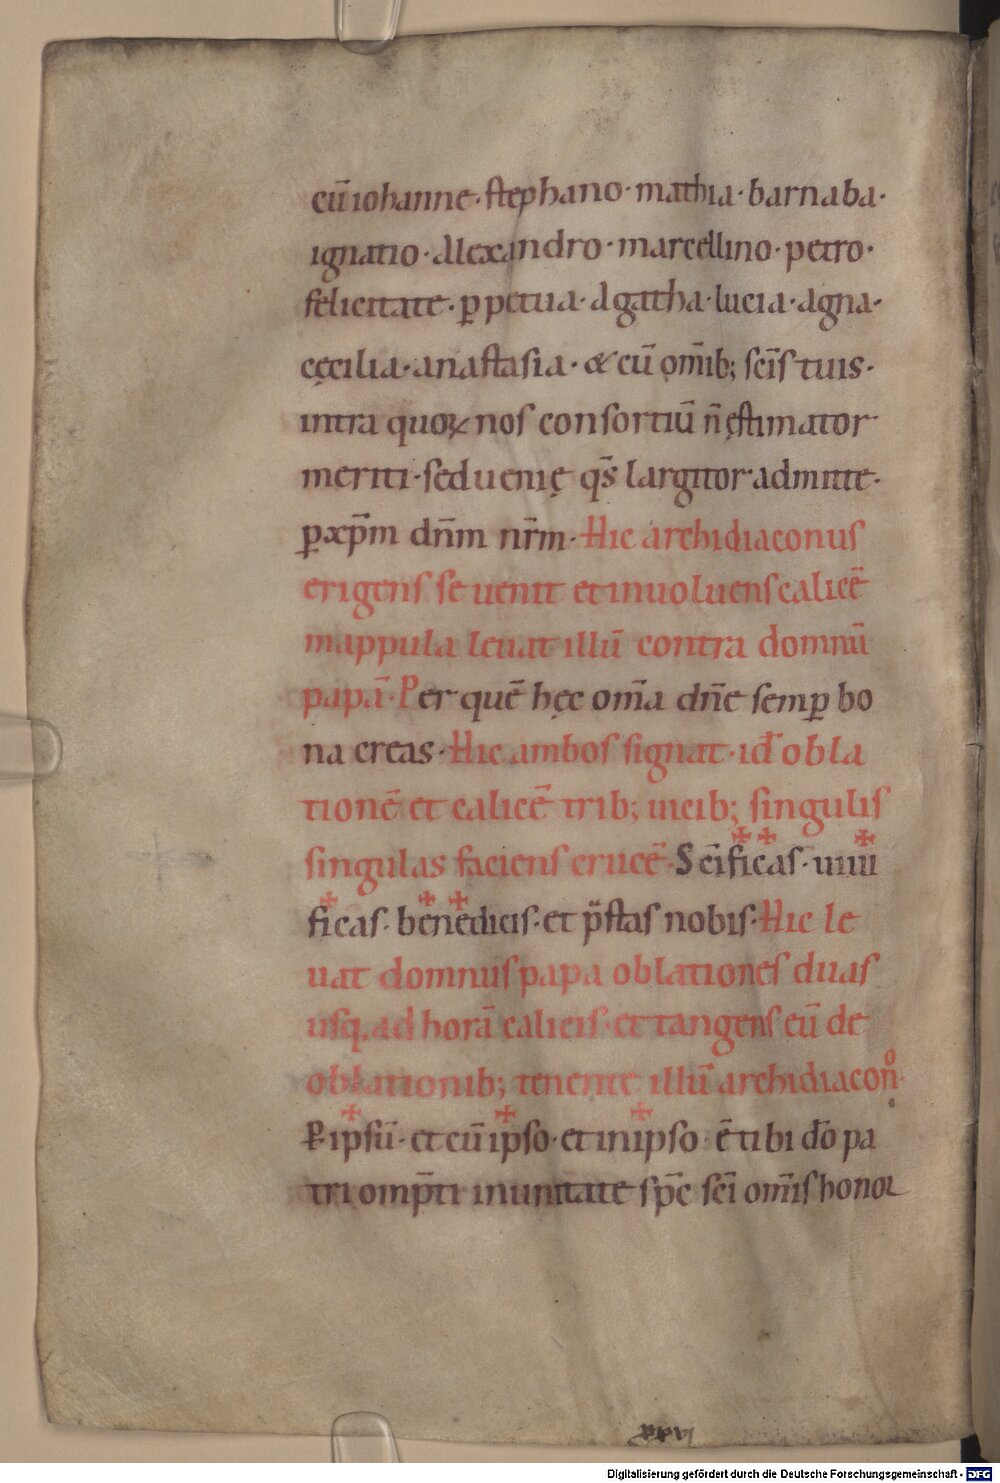 cū iohanne · stephano · mathia · barnaba ·
ignatio · alexandro · marcellino · petro ·
felicitate · ꝑpetua · agatha · lucia · agna ·
cęcilia · anastasia · & cū om̄ib; sc̄is tuis ·
intra quoꝝ nos consortiū n̄ ęstimator
meriti · sed uenię qs̄ largitor admitte ·
ꝑ xp̄m dn̄m nr̄m · Hic archidiaconus
erigens se uenit et inuoluens calicē
mappula leuat illū contra domnū
papā · Per quē hęc om̄a dn̄e semꝑ bo
na creas · Hic ambos signat · id̄ obla
tionē et calicē trib; uicib; singulis
singulas faciens crucē · Sc̄ificas · uiui
ficas · benedicis · et p̄stas nobis · Hic le
uat domnus papa oblationes duas
usq, ad horā calicis · et tangens eū de
oblationib; tenente illū archidiacono ·
P · ipsū · et cū ipso · et in ipso · ē tibi do pa
tri omp̄ti in unitate sp̄c sc̄i om̄is honor
Digitalisierung gefördert durch die Deutsche Forschungsgemeinschaft - DFG